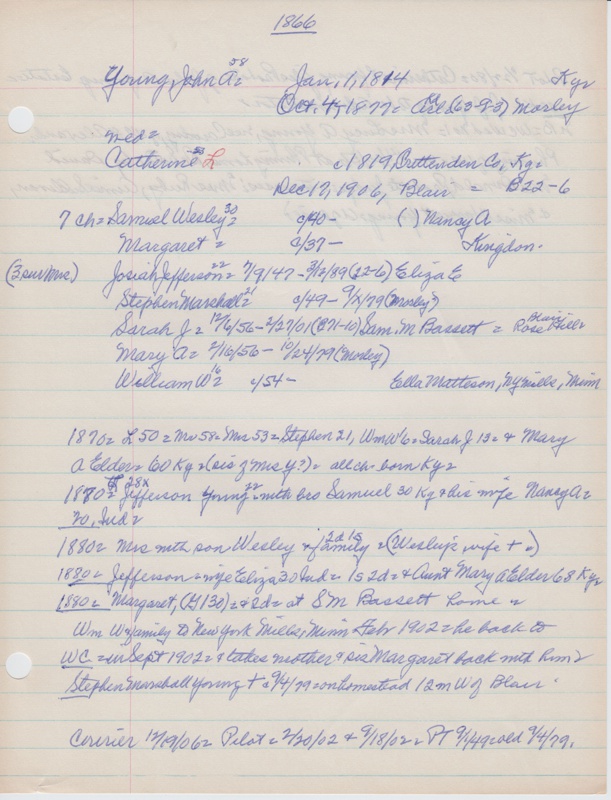 1866
Young, John A = 58 Jan, 1, 1814 Ky =
Oct. 4, 1877 = (63-9-3) Mosley
med =
Catherine L c 1819, Crittenden Co, Kg =
Dec 17, 1906, Blair = B22-6
7 ch = Samuel Wesley 30 = c/40 - ( ) Nancy A
Margaret = c/37 - Kingdon.
Josiah Jefferson 22 = 7/9/47 - 3/12/89 (22-6) Eliza E
Stephen Marshall 21 = c/49 - 9/ /79 (Mosley)
Sarah J = 12/6/56 - 2/27/01 (C71-10) Sam. M Bassett = Blair Rose Hill =
Mary A = 2/16/56 - 10/24/79 (Mosley)
William W 16 = c/54 - Ella Matteson, Ny Mills, Minn
1870 = L 50 = Mr 58 = Mrs 53 = Stephen 21, Wm W 16 = Sarah J 13 = & Mary
A Elder = 60 Kg = (sis of Mrs Y?) = all ch born Ky =
1870 = Jefferson Young 22 = with bro Samuel 30 Kg & his wife Nancy A =
30, Ind =
1880 = Mrs with son Wesley & family = (Wesley's wife + =)
1880 = Jefferson = wife Eliza 30 Ind = 1s 2d = & Aunt Mary A Elder 68 Ky =
1880 = Margaret, (G 130) = & 2d = at S M Bassett home =
Wm W & family to New York Mills, Minn Feb 1902 = he back to
WC = in Sept 1902 = & takes mother & sis Margaret back with him =
Stephen Marshall Young + c 9/4/79 = on homestead 12 m W of Blair.
Courier 12/19/06 = Pilot = 2/20/02 & 9/18/02 = PT 9/1/49 = old 9/4/79.